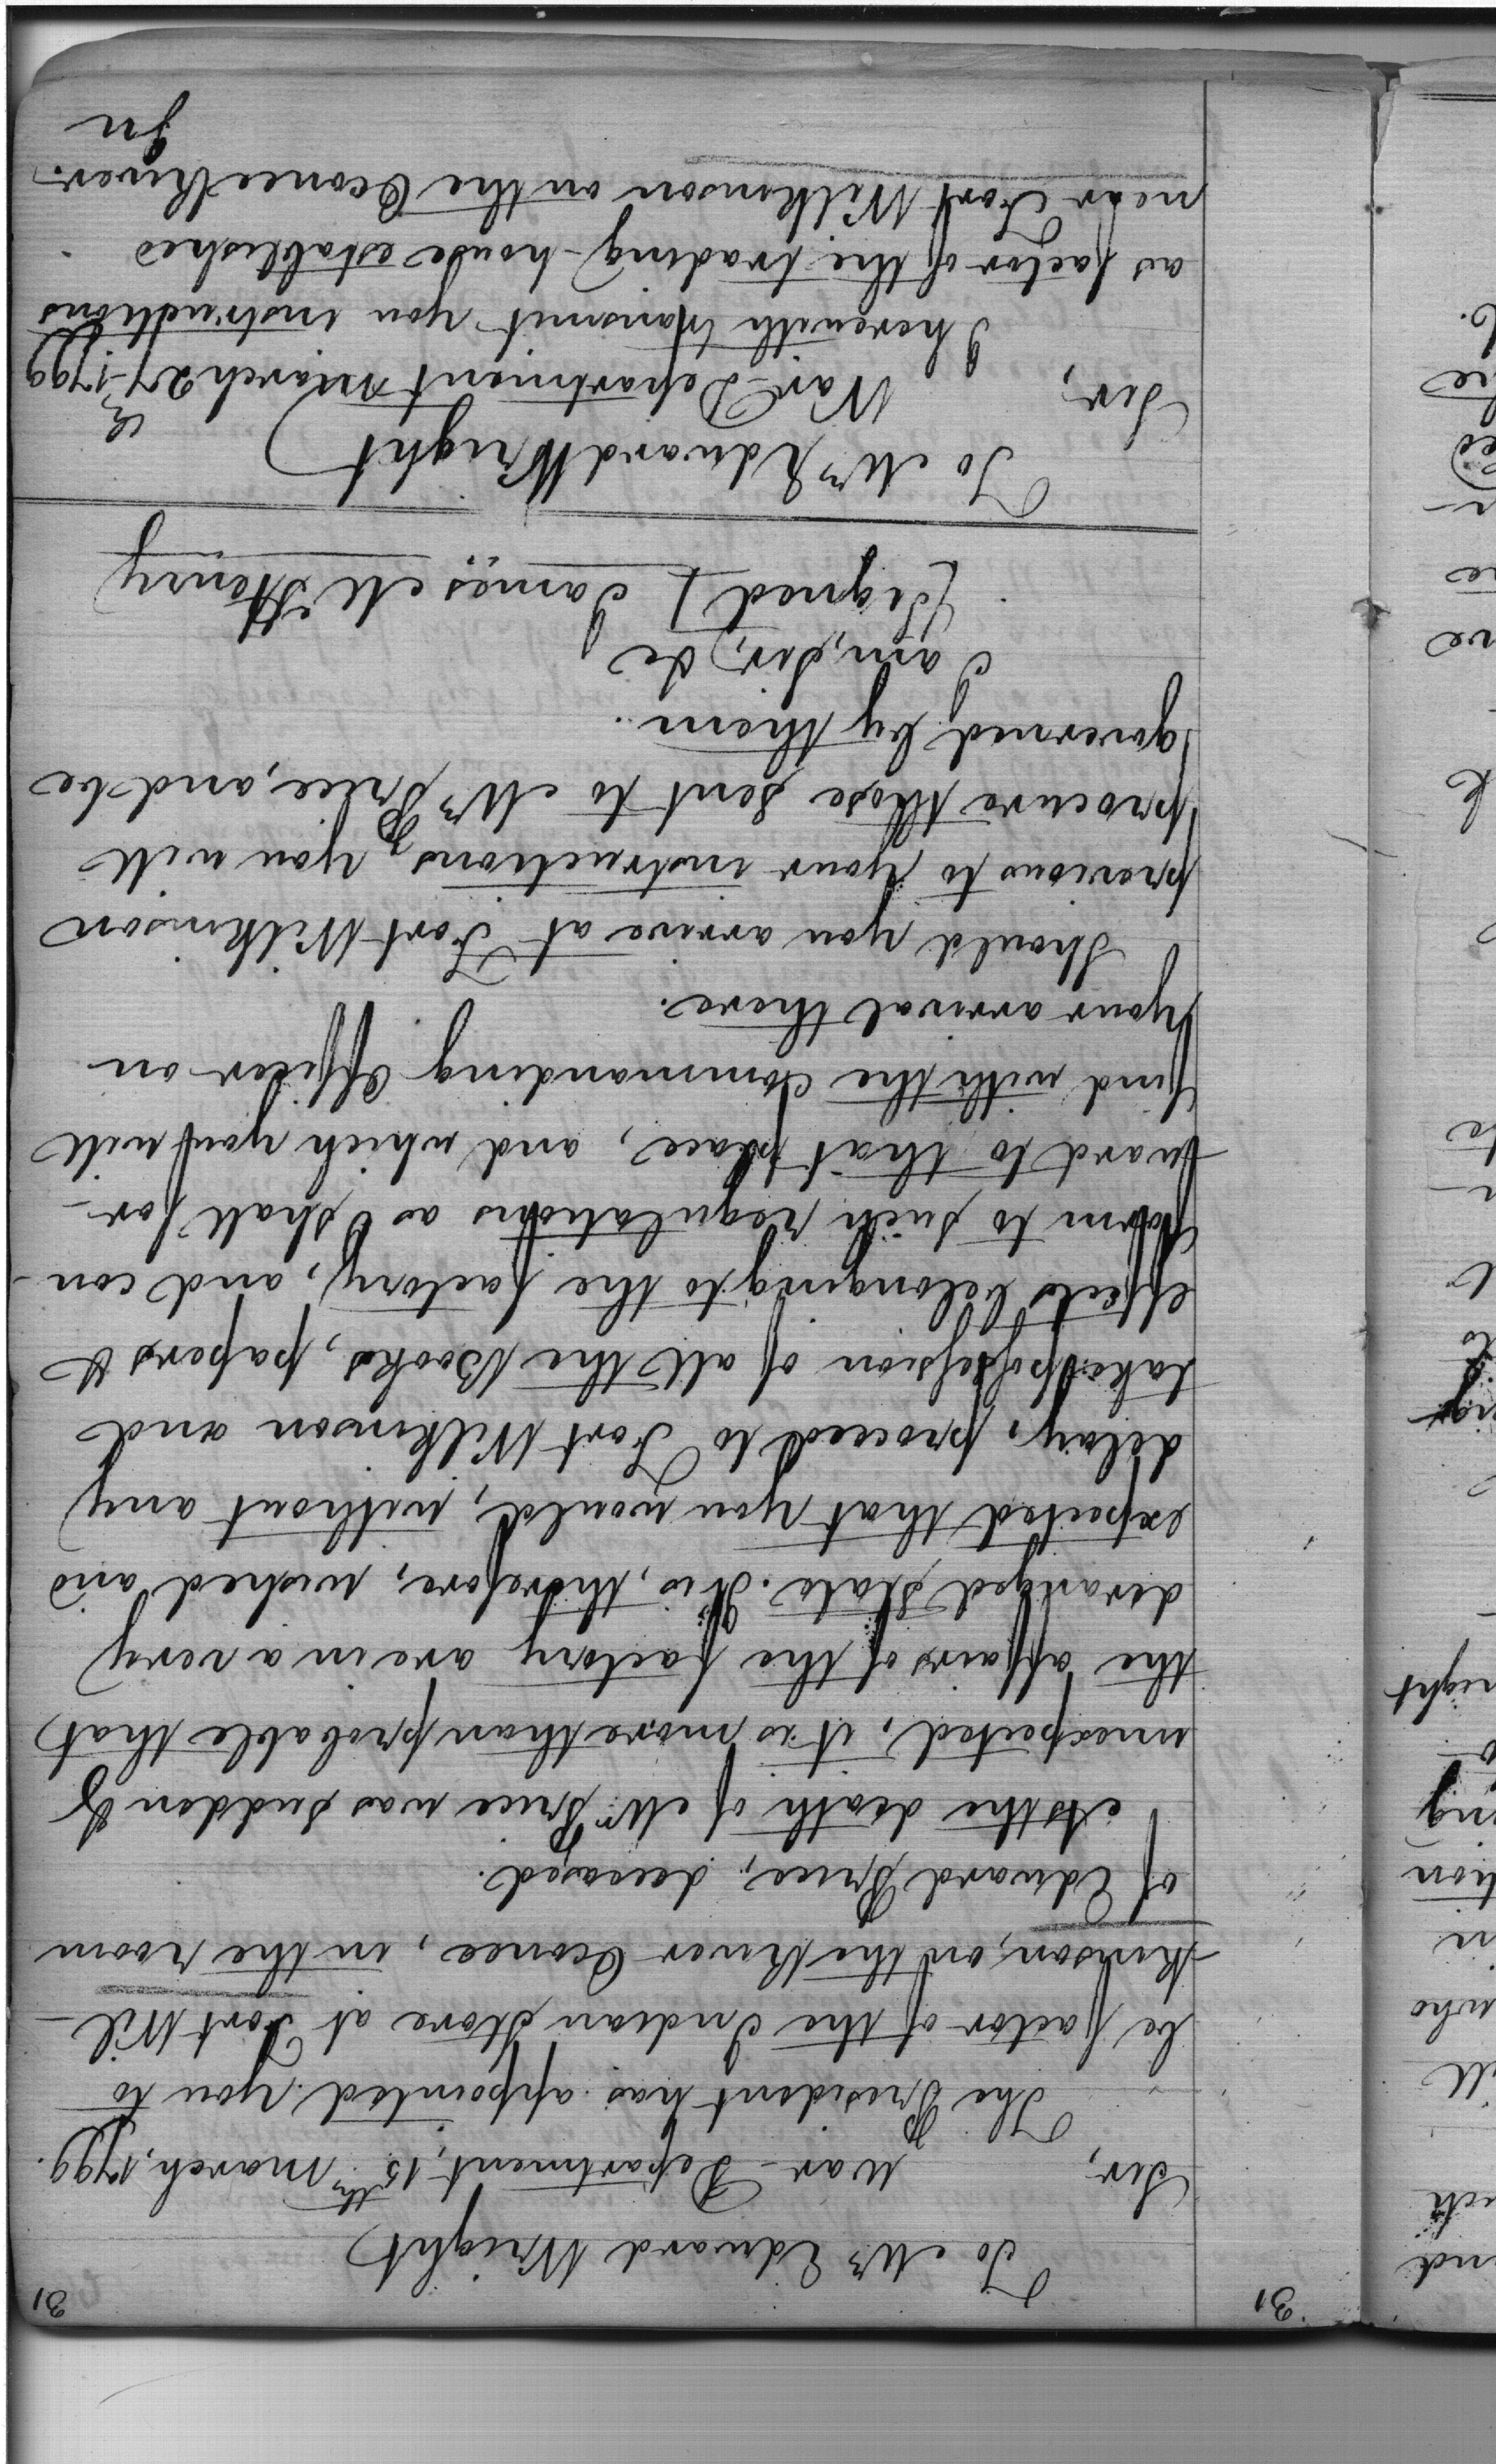 31
31
To Mr Edward Wright
Sir, War-Department, 15th March, 1799.
The President has appointed you to
be factor of the Indian Store at Fort Wil-
kinson, on the River Oconee, in the room
of Edward Price, deceased.
As the death of Mr Price was sudden &
unexpected, it is more than probable that
the affairs of the factory are in a very
deranged state. It is, therefore, wished and
expected that you would, without any
delay, proceed to Fort Wilkinson and
take possession of all the Books, papers &
effects belonging to the factory, and con-
form to such regulations as I shall for-
ward to that place, and which you will
find with the commanding Officer on
your arrival there.
Should you arrive at Fort Wilkinson
previous to your instructions, you will
procure those sent to Mr Price, and be
governed by them.
I am, Sir, &c
(Signed) James McHenry
To Mr Edward Wright
Sir, War-Department March 27th 1799
I herewith transmit you instructions
as factor of the trading-house established
near Fort Wilkinson on the Oconee River.
In